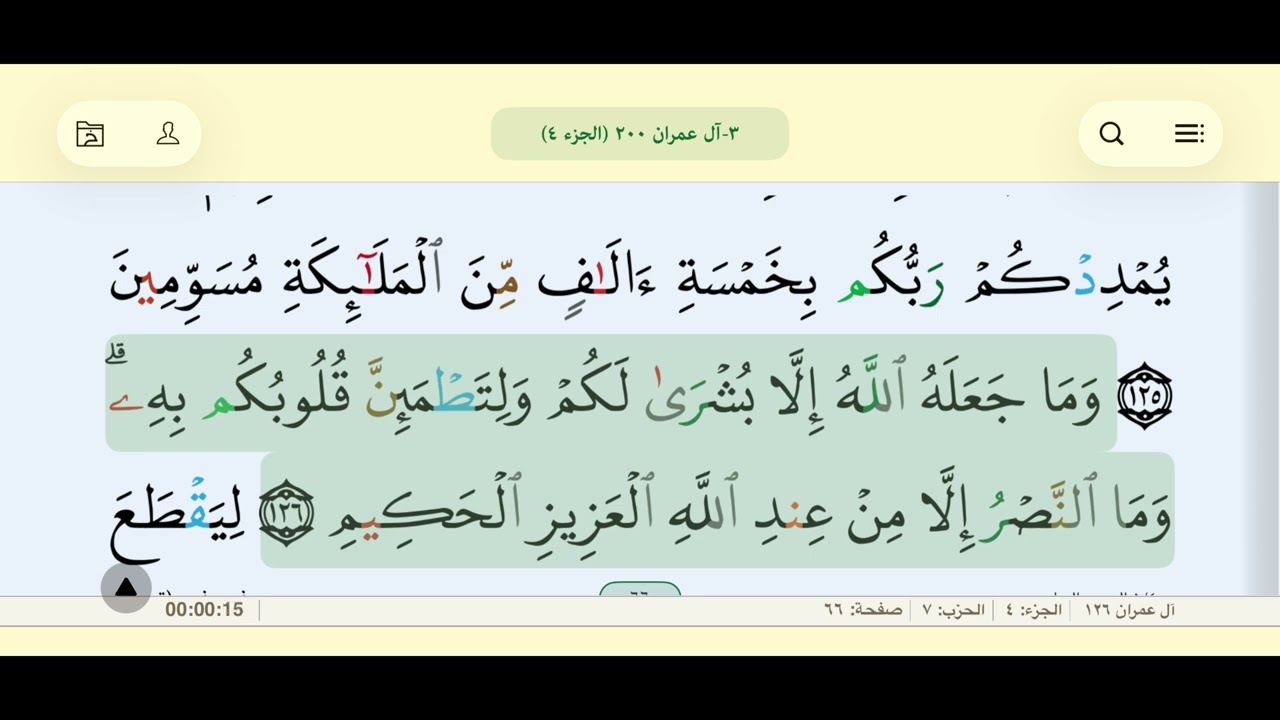 ٣-آل عمران ٢٠٠ (الجزء ٤)
يُمْدِدْكُمْ رَبُّكُم بِخَمْسَةِ ءَالَٰفٍ مِّنَ ٱلْمَلَٰٓئِكَةِ مُسَوِّمِينَ
١٢٥ وَمَا جَعَلَهُ ٱللَّهُ إِلَّا بُشْرَىٰ لَكُمْ وَلِتَطْمَئِنَّ قُلُوبُكُم بِهِۦ ۗ
وَمَا ٱلنَّصْرُ إِلَّا مِنْ عِندِ ٱللَّهِ ٱلْعَزِيزِ ٱلْحَكِيمِ ١٢٦ لِيَقْطَعَ
آل عمران ١٢٦ | الجزء: ٤ | الحزب: ٧ | صفحة: ٦٦ | 00:00:15